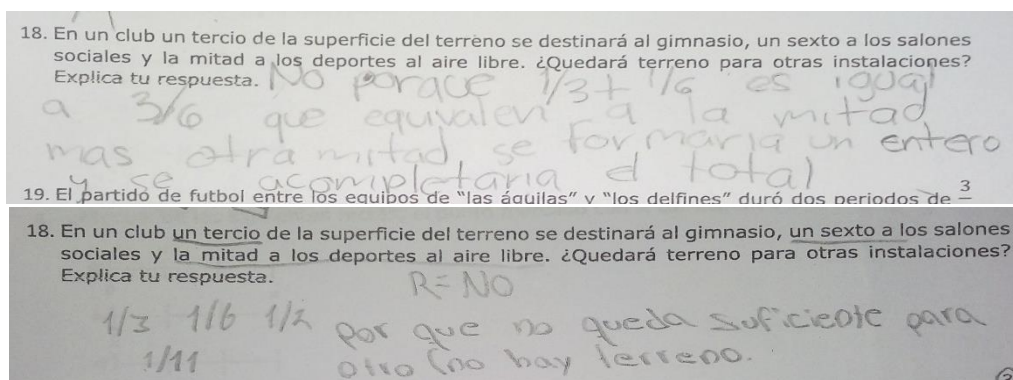 18. En un club un tercio de la superficie del terreno se destinará al gimnasio, un sexto a los salones
sociales y la mitad a los deportes al aire libre. ¿Quedará terreno para otras instalaciones?
Explica tu respuesta. No porque 1/3 + 1/6 es igual
a 3/6 que equivalen a la mitad
mas otra mitad, se formaria un entero
y se acompletaria el total
19. El partido de futbol entre los equipos de "las águilas" y "los delfines" duró dos periodos de 3
18. En un club un tercio de la superficie del terreno se destinará al gimnasio, un sexto a los salones
sociales y la mitad a los deportes al aire libre. ¿Quedará terreno para otras instalaciones?
Explica tu respuesta.
R= NO
1/3 1/6 1/2 por que no queda suficiente para
1/11 otro (no hay terreno.